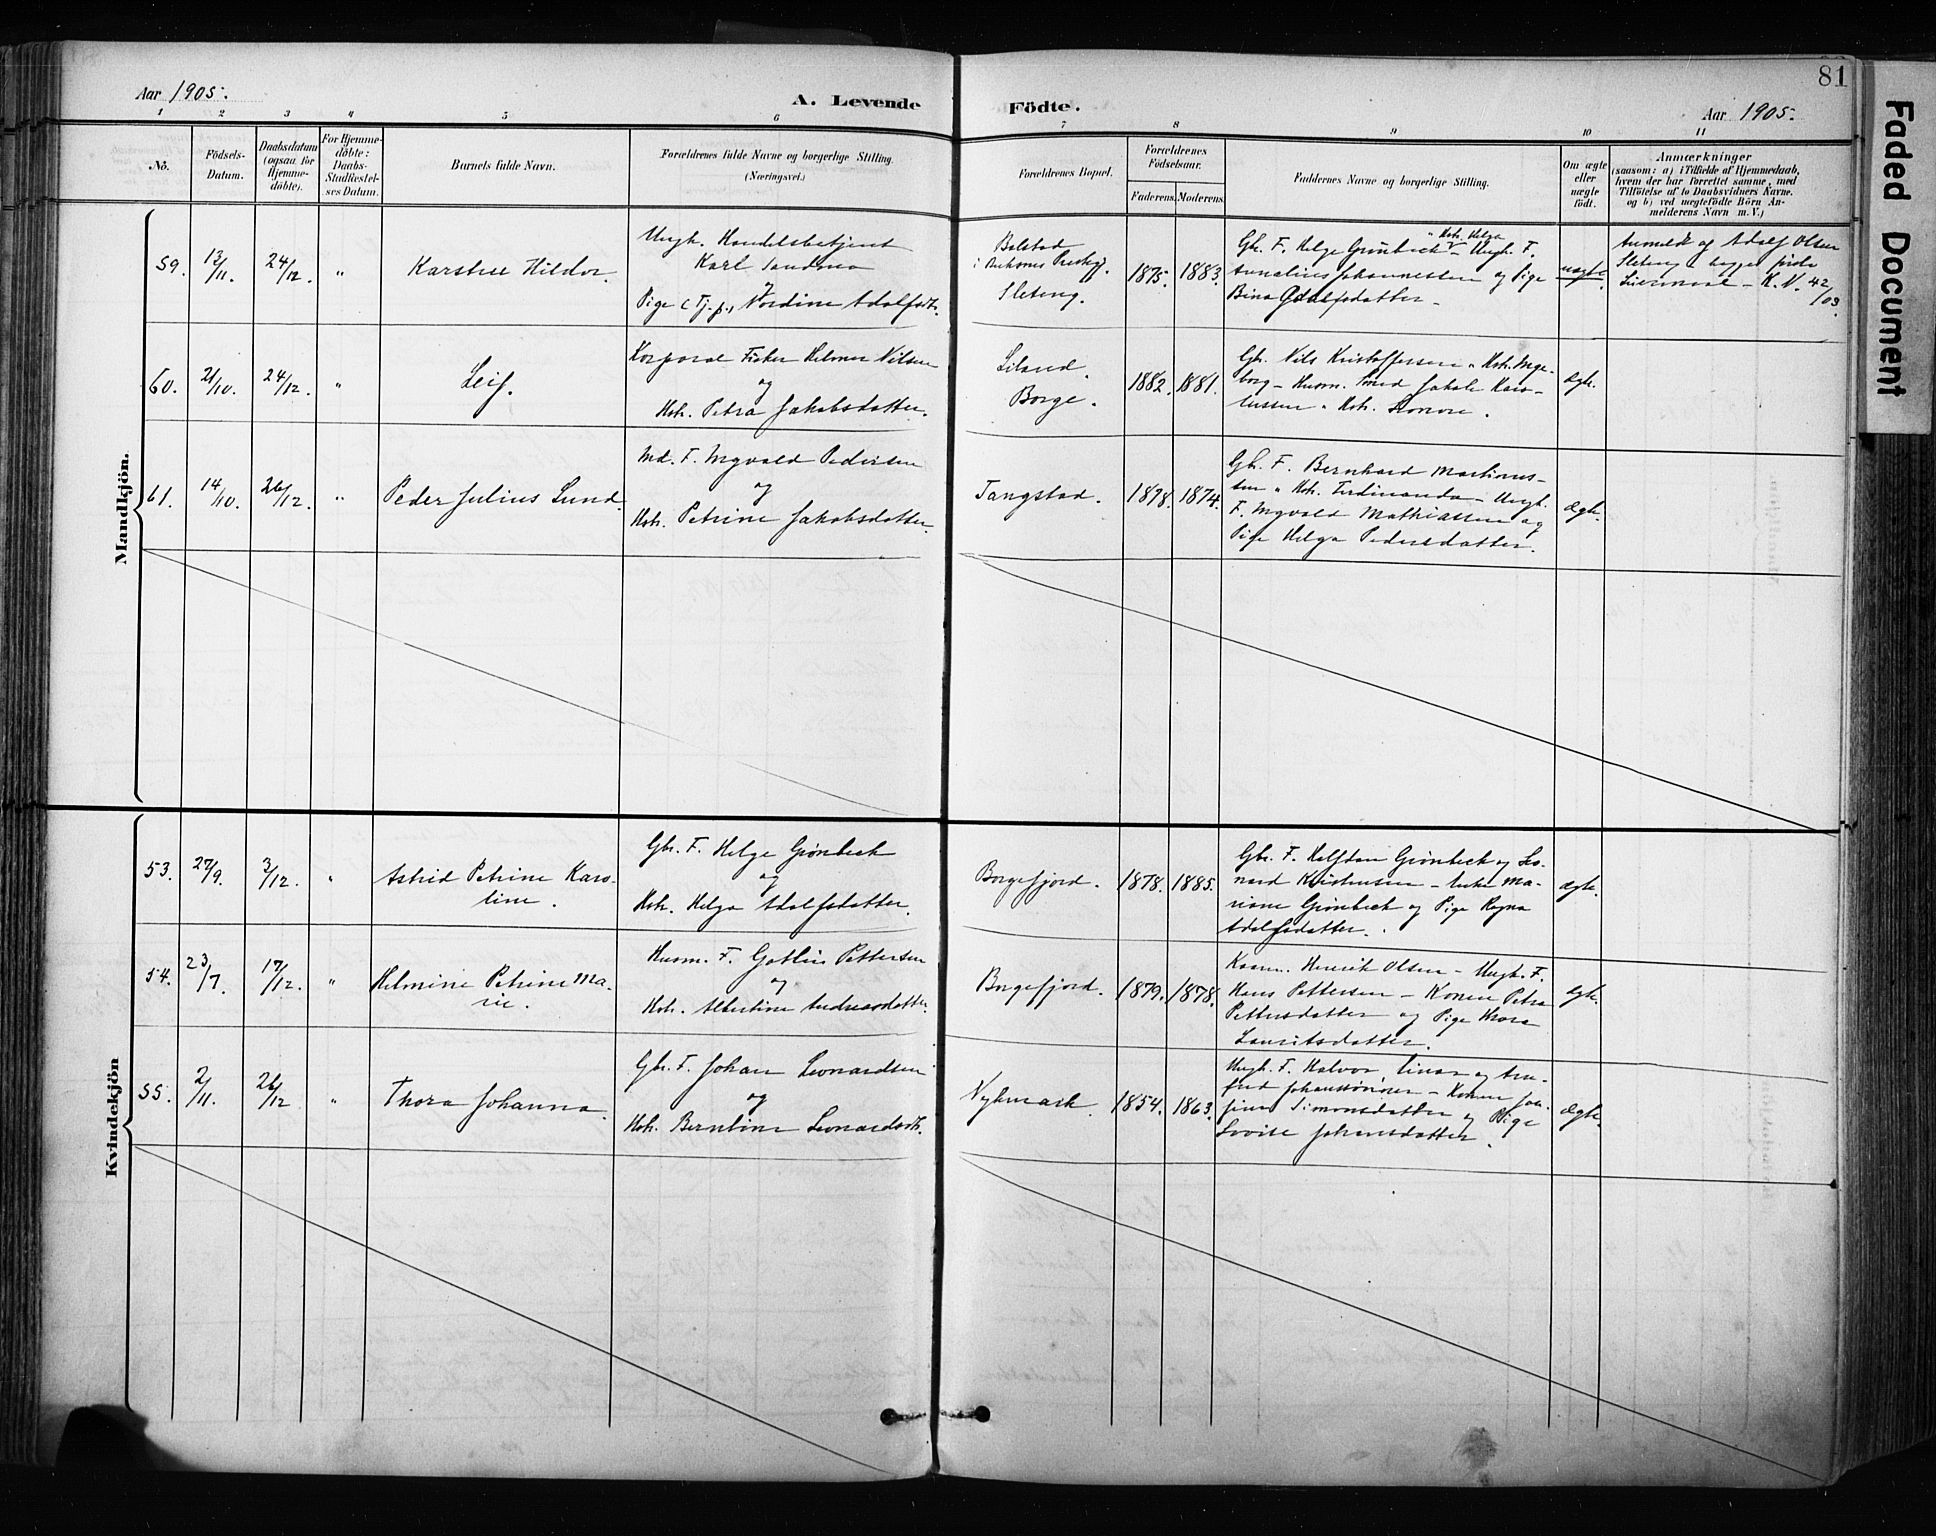 Aar 1905.
A. Levende
Födte.
Aar 1905.
81
Faded Document
1 2 3 4 5 6 7 8 9 10 11
No.
Födsels-
Datum.
Daabsdatum
(ogsaa for
Hjemme-
döbte).
For Hjemme-
döbte:
Daabs-
Stadfæstel-
ses Datum.
Barnets fulde Navn.
Forældrenes fulde Navne og borgerlige Stilling.
(Næringsvei.)
Forældrenes Bopæl.
Forældrenes
Födselsaar.
Faderens.
Moderens.
Faddernes Navne og borgerlige Stilling.
Om ægte
eller
uægte
födt.
Anmærkninger
(saasom: a) i Tilfælde af Hjemmedaab,
hvem der har forrettet samme, med
Tilföielse af to Daabsvidners Navne.
og b) ved uægtefödte Börn An-
melderens Navn m. V.)
Mandkjön.
59.
13/11.
24/12.
"
Karstein Hildor.
Ungk. Handelsbetjent
Karl
Pige (Tj.p.) Nordine Adolfsdtr.
Bolstad
i Buksnes Prestgj.
Sleteng.
1875.
1883.
Gbr. F. Helge Grönbeck " Hstr. Helga – Ungk. F.
Johannessen og Pige
Bina Adolfsdatter –
uægte.
Anmeldt af Adolf Olsen
Sleteng – begges
Leiermaal – K. N. 42/03.
60.
21/10.
24/12.
"
Leif.
Korporal Fisker Helmer Nilsen
og
Hstr. Petra Jakobsdatter.
Liland.
Borge.
1882.
1881.
Gbr. Nils Kristoffersen " Hstr. Inge-
borg – Husm. Smed Jakob Karo-
lussen " Hstr.
ægte.
61.
14/10.
26/12.
"
Peder Julius Lund.
Md. F. Ingvald Pedersen
og
Hstr. Petrine Jakobsdatter.
Tangstad.
1878.
1874.
Gbr. F. Bernhard Martinus-
sen " Hstr. Ferdinanda – Ungk.
F. Ingvald Mathiassen og
Pige Helga Pedersdatter.
Ægte.
Kvindekjön
53.
27/9.
3/12.
"
Astrid Petrine Karo-
line.
Gbr. F. Helge Grönbeck
og
Hstr. Helga Adolfsdatter.
Borgefjord.
1878.
1885.
Gbr. F. Halfdan Grönbeck og Leo-
nard Kristensen – Enke Ma-
riane Grönbeck og Pige Ragna
Adolfsdatter.
ægte.
54.
23/7.
17/12.
"
Helmine Petrine Ma-
rie.
Husm. F. Gotlin Pettersen
og
Hstr. Albertine Andreasdatter.
Borgefjord.
1879.
1878.
Kaarm. Henrik Olsen – Ungk. F.
Hans Pettersen – Konen Petra
Pettersdatter og Pige Thora
Lauritsdatter.
ægte.
55.
2/11.
26/12
"
Thora Johanna.
Gbr. F. Johan Leonardsen
og
Hstr. Berntine Leonardsdtr.
Nykmark.
1854.
1863.
Ungk. F. Halvor, Einar og Arn-
fred Johanssönner – Konen Jo-
sine Simonsdatter og Pige
Lovise Johansdatter.
Ægte.